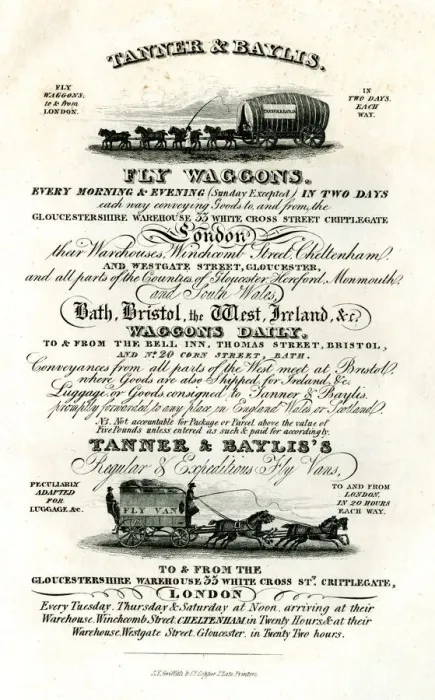 TANNER & BAYLIS.
FLY
WAGGONS,
to & from
LONDON.
IN
TWO DAYS,
EACH
WAY.
TANNER & BAYLIS
FLY WAGGONS.
EVERY MORNING & EVENING (Sunday Excepted) IN TWO DAYS
each way conveying Goods to, and from, the
GLOUCESTERSHIRE WAREHOUSE 33 WHITE CROSS STREET CRIPPLEGATE
London
their Warehouses, Winchcomb Street, Cheltenham.
AND WESTGATE STREET, GLOUCESTER,
and all parts of the Counties of Gloucester Hereford, Monmouth
and South Wales,
Bath, Bristol, the West, Ireland, &c.
WAGGONS DAILY,
TO & FROM THE BELL INN, THOMAS STREET, BRISTOL,
AND No. 20 CORN STREET, BATH.
Conveyances from all parts of the West meet at Bristol,
where Goods are also Shipped for Ireland, &c.
Luggage or Goods consigned to Tanner & Baylis,
promptly forwarded to any place in England Wales or Scotland.
NB. Not accountable for Package or Parcel above the value of
Five Pounds unless entered as such & paid for accordingly.
TANNER & BAYLIS'S
Regular & Expeditious Fly Vans,
PECULIARLY
ADAPTED
FOR
LUGGAGE &c.
TO AND FROM
LONDON,
IN 20 HOURS
EACH WAY.
FLY VAN
TO & FROM THE
GLOUCESTERSHIRE WAREHOUSE 33 WHITE CROSS ST. CRIPPLEGATE,
LONDON
Every Tuesday, Thursday & Saturday at Noon, arriving at their
Warehouse, Winchcomb Street, CHELTENHAM in Twenty Hours & at their
Warehouse, Westgate Street, Gloucester, in Twenty Two hours.
Griffith & Co. Copper Plate Printers